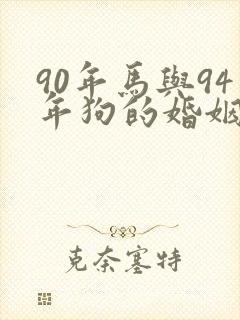 90年馬與94
年狗的婚姻
克奈塞特